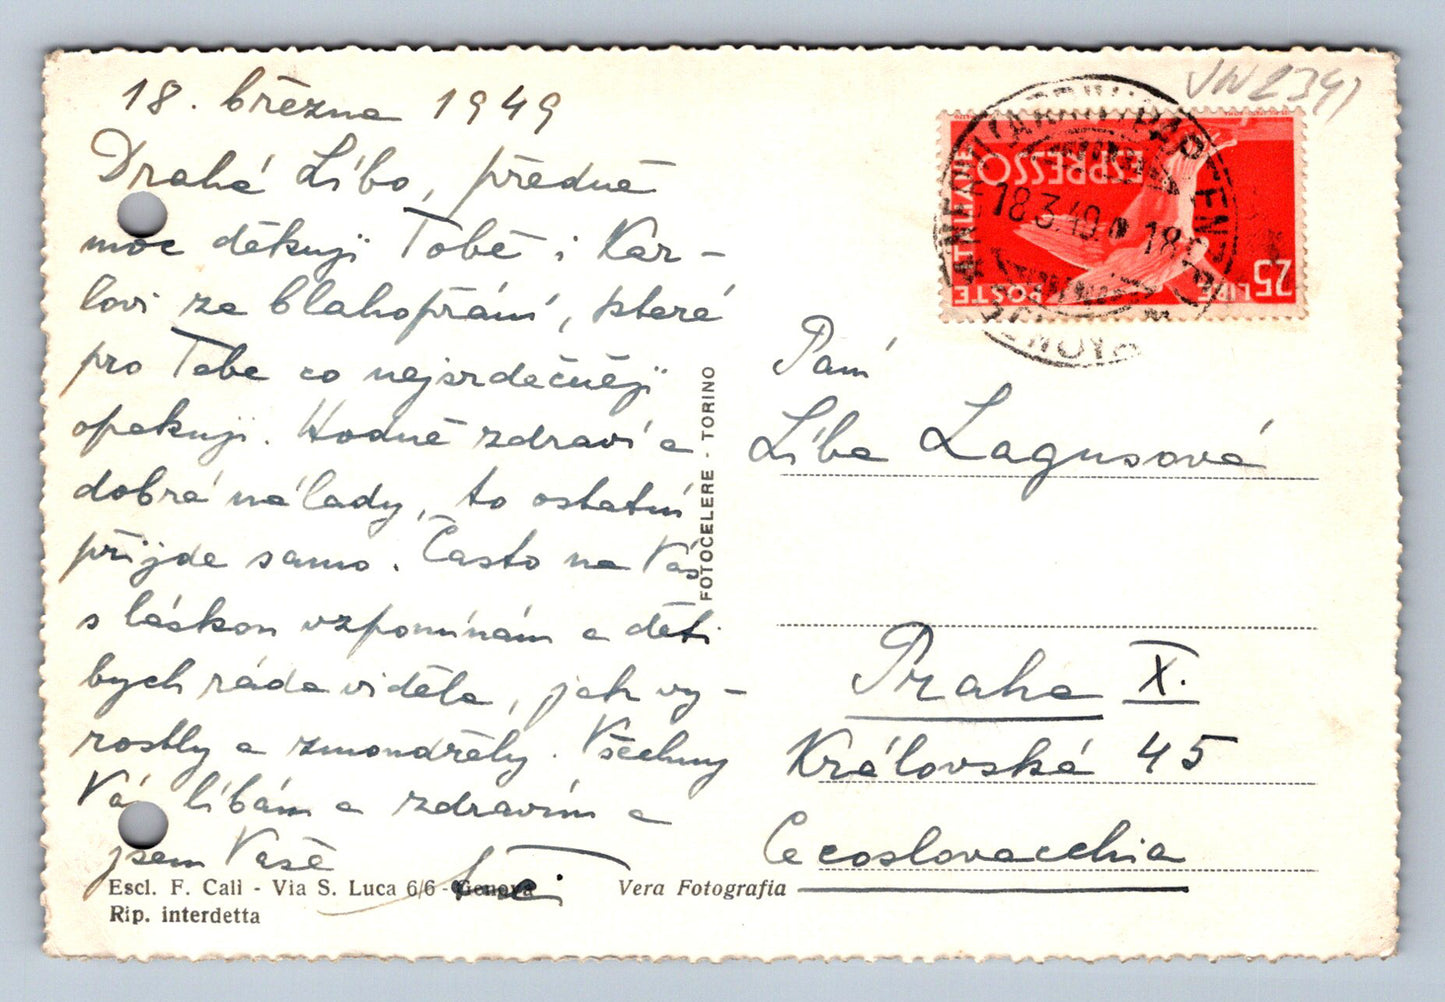 18. března 1949
Drahá Líbo, předně
moc děkuji Tobě i Kar-
lovi za blahopřání, které
pro Tebe co nejsrdečněji
opakuji. Hodně zdraví a
dobré nálady, to ostatní
přijde samo. Často na Vás
s láskou vzpomínám a děti
bych ráda viděla, jak vy-
rostly a zmoudřely. Všechny
Vás líbám a zdravím a
jsem Vaše
Escl. F. Calì - Via S. Luca 6/6 - Genova
Rip. interdetta
Vera Fotografia
FOTOCELERE - TORINO
VN2391
POSTE ITALIANE
ESPRESSO
25 LIRE
18.3.49
GENOVA
Paní
Líba Lagusová
Praha X.
Královská 45
Cecoslovacchia